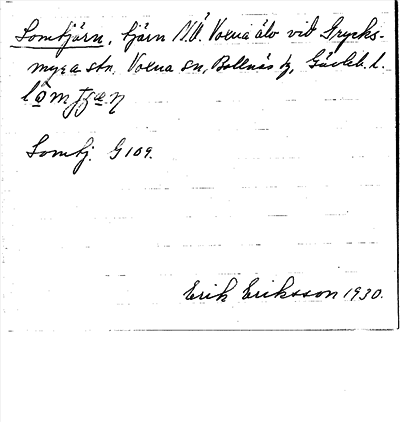 Lomtjärn, tjärn N.Ö. Voxna älv vid Trycks-
myra stn. Voxna sn, Bollnäs tg, Gävleb. l.
Lomtj. G109.
Erik Eriksson 1930.